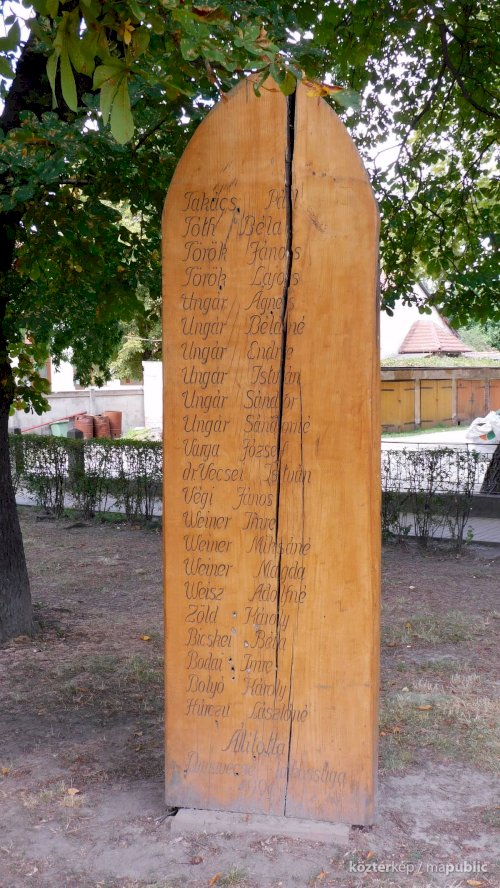 Takács Pál
Tóth Béla
Török János
Török Lajos
Ungár Ágnes
Ungár Béláné
Ungár Endre
Ungár István
Ungár Sándor
Ungár Sándorné
Varja József
dr Vécsei István
Végi János
Weiner Imre
Weiner Mihályné
Weiner Magda
Weisz Adolfné
Zöld Károly
Bicskei Béla
Bodai Imre
Bolyó Károly
Hurczu Lászlóné
Állította
Lakossága
köztérkép / mapublic